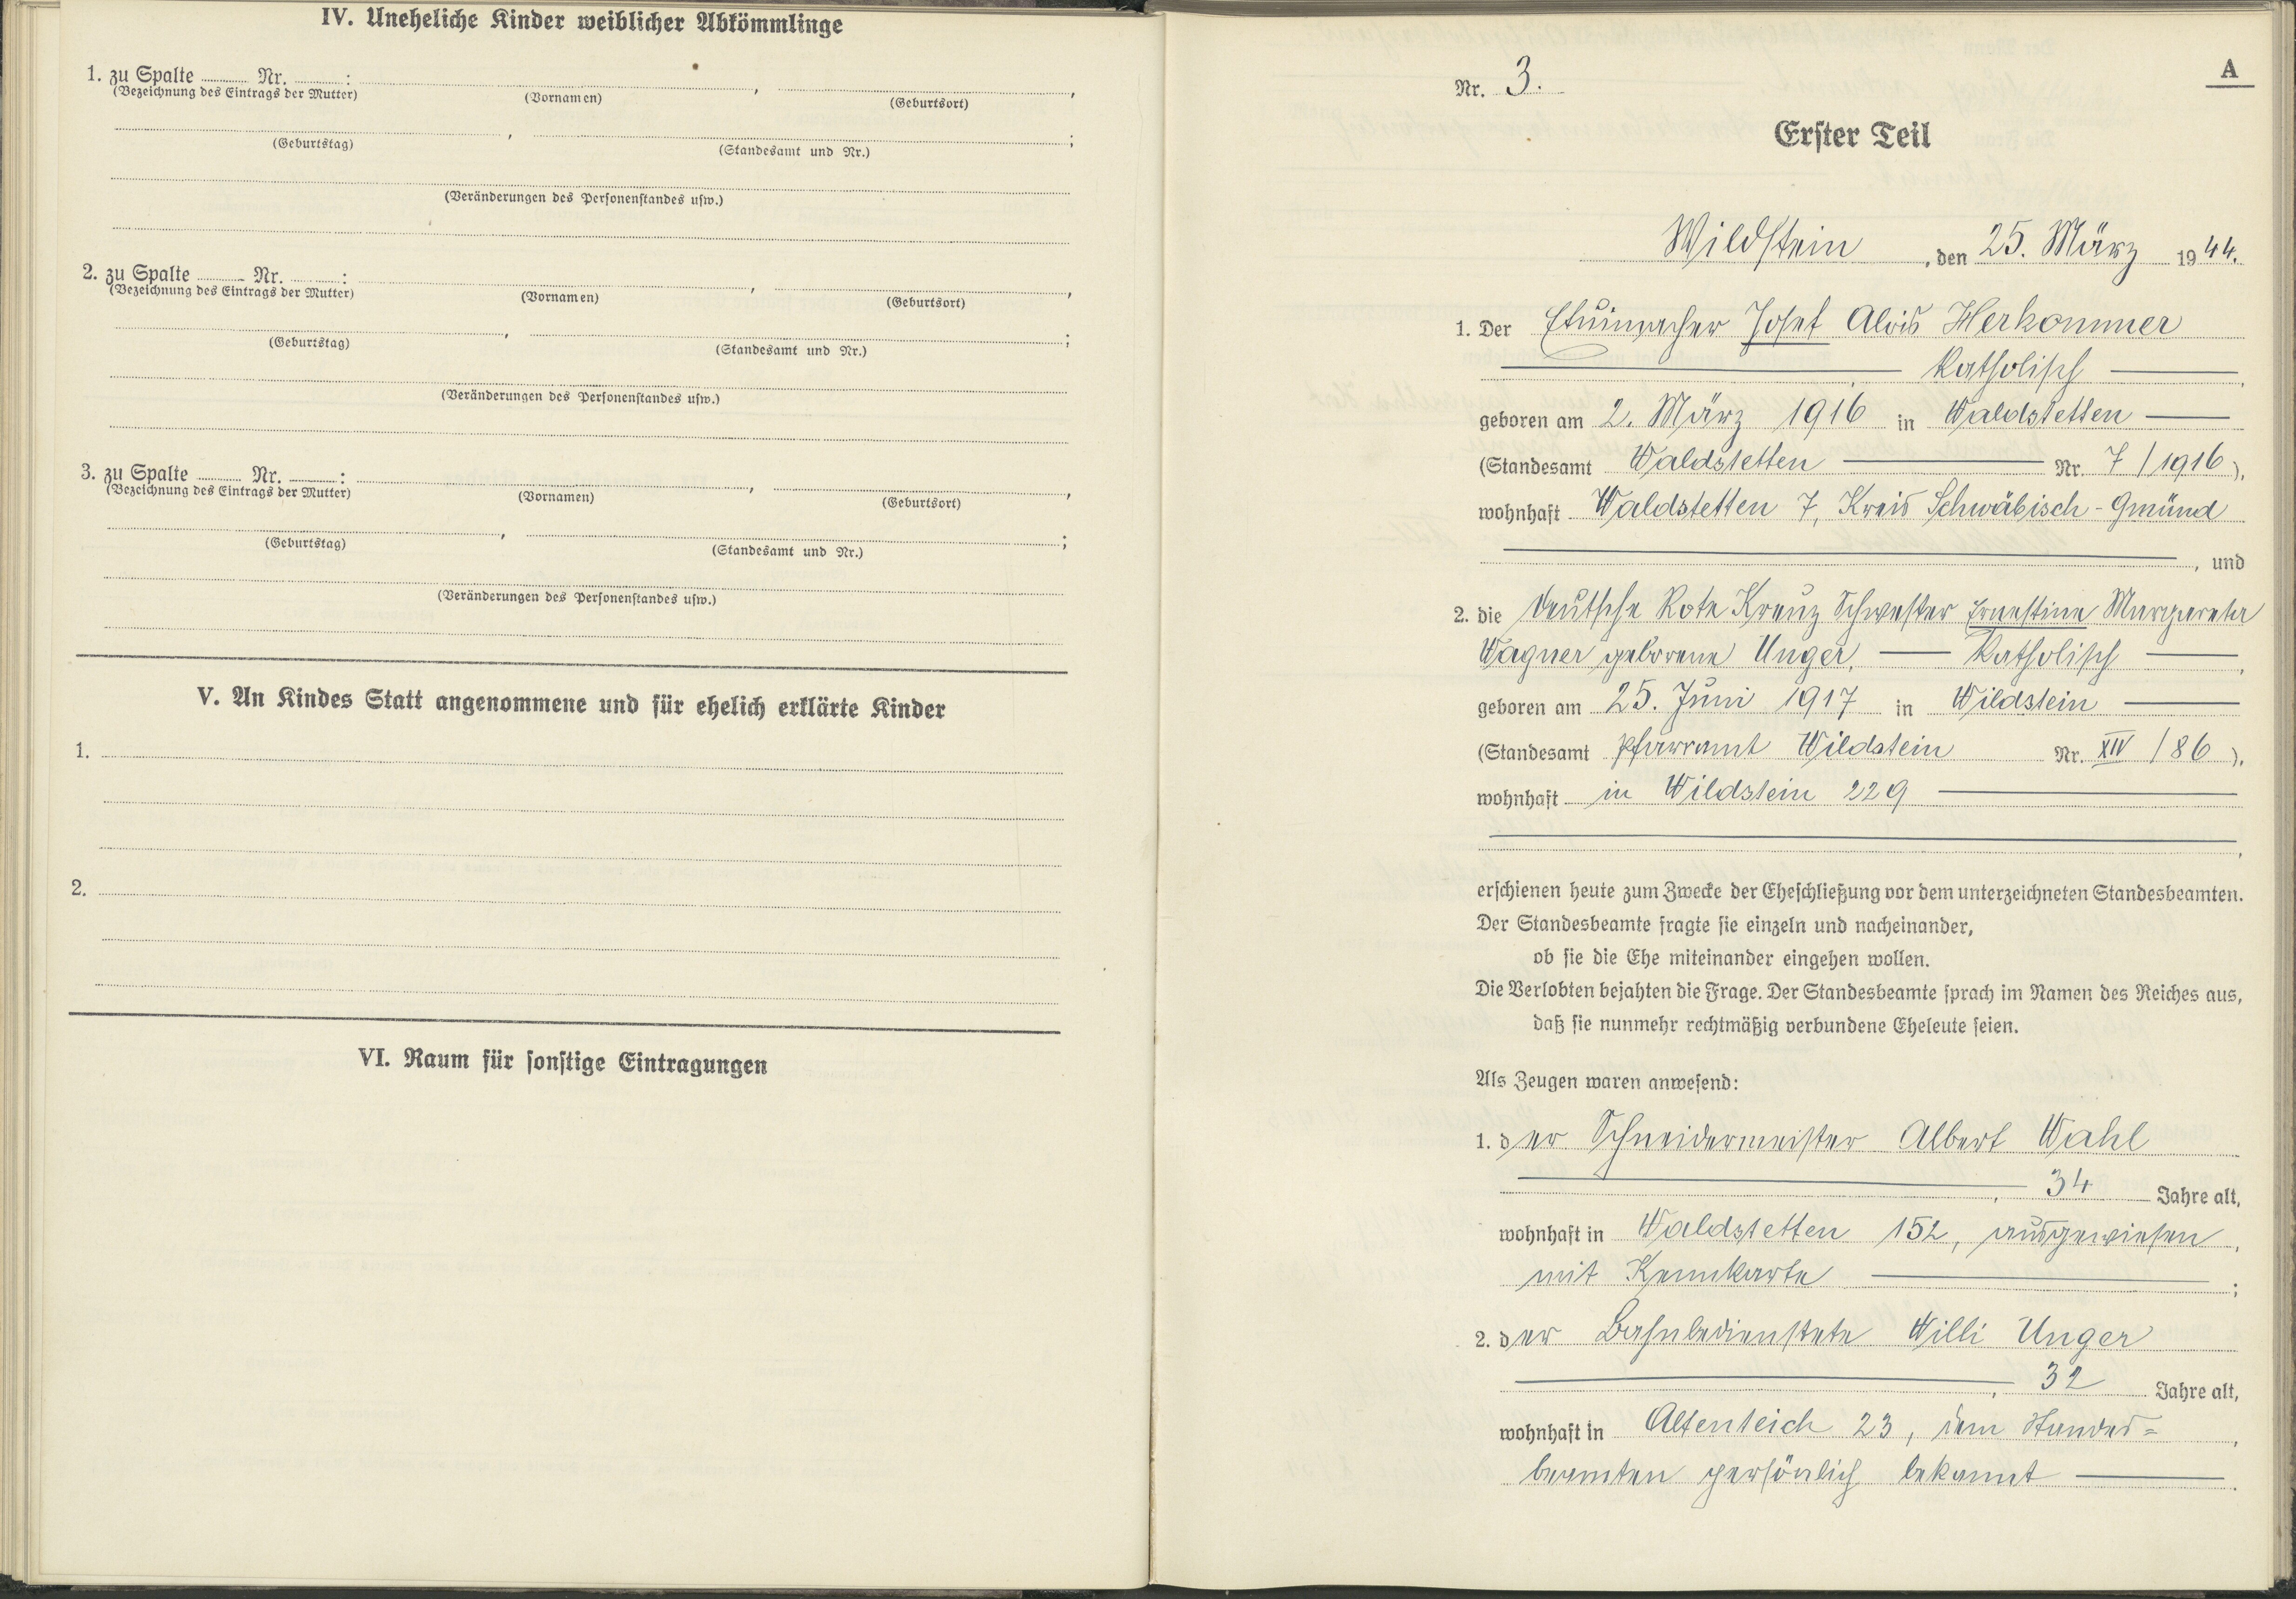 IV. Uneheliche Kinder weiblicher Abkömmlinge
1. zu Spalte ........ Nr. ........:
(Bezeichnung des Eintrags der Mutter) (Vornamen) , (Geburtsort) ,
(Geburtstag) , (Standesamt und Nr.) ;
(Veränderungen des Personenstandes usw.)
2. zu Spalte ........ Nr. ........:
(Bezeichnung des Eintrags der Mutter) (Vornamen) , (Geburtsort) ,
(Geburtstag) , (Standesamt und Nr.) ;
(Veränderungen des Personenstandes usw.)
3. zu Spalte ........ Nr. ........:
(Bezeichnung des Eintrags der Mutter) (Vornamen) , (Geburtsort) ,
(Geburtstag) , (Standesamt und Nr.) ;
(Veränderungen des Personenstandes usw.)
V. An Kindes Statt angenommene und für ehelich erklärte Kinder
1.
2.
VI. Raum für sonstige Eintragungen
A
Nr. 3.
Erster Teil
Wildstein, den 25. März 1944.
1. Der Etuimacher Josef Alois Herkommer
katholisch ,
geboren am 2. März 1916 in Waldstetten
(Standesamt Waldstetten Nr. 7/1916),
wohnhaft Waldstetten 7, Kreis Schwäbisch-Gmünd
, und
2. die Deutsche Rote Kreuz Schwester Ernestine Margareta
Wagner geborene Unger, katholisch ,
geboren am 25. Juni 1917 in Wildstein
(Standesamt Pfarramt Wildstein Nr. XIV/86),
wohnhaft in Wildstein 229
,
erschienen heute zum Zwecke der Eheschließung vor dem unterzeichneten Standesbeamten.
Der Standesbeamte fragte sie einzeln und nacheinander,
ob sie die Ehe miteinander eingehen wollen.
Die Verlobten bejahten die Frage. Der Standesbeamte sprach im Namen des Reiches aus,
daß sie nunmehr rechtmäßig verbundene Eheleute seien.
Als Zeugen waren anwesend:
1. der Schneidermeister Albert Wahl
, 34 Jahre alt,
wohnhaft in Waldstetten 152, ausgewiesen ,
mit Kennkarte ;
2. der Bahnbedienstete Willi Unger
, 32 Jahre alt,
wohnhaft in Altenteich 23, dem Standes= ,
beamten persönlich bekannt .